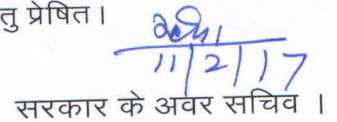 तु प्रेषित।
11/2/17
सरकार के अवर सचिव ।